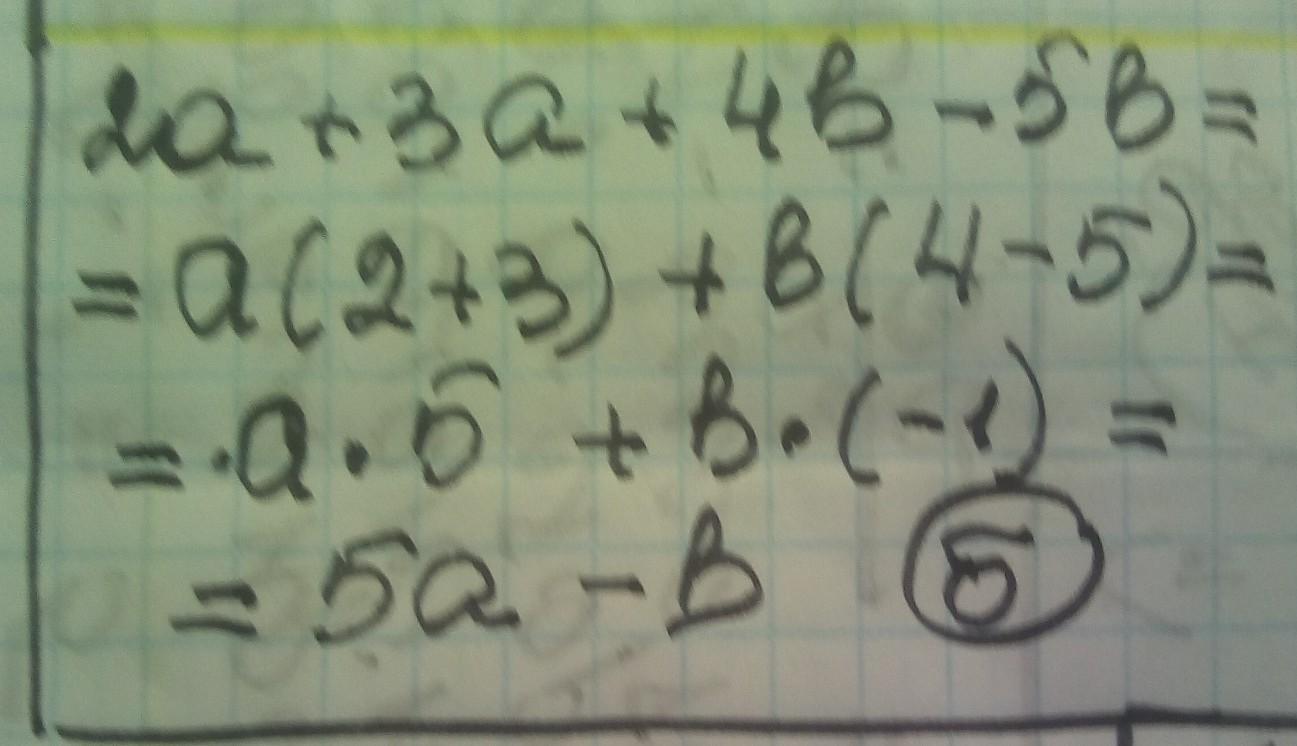 2a + 3a + 4b - 5b =
= a(2+3) + b(4-5) =
= ·a · 5 + b · (-1) =
= 5a - b 5